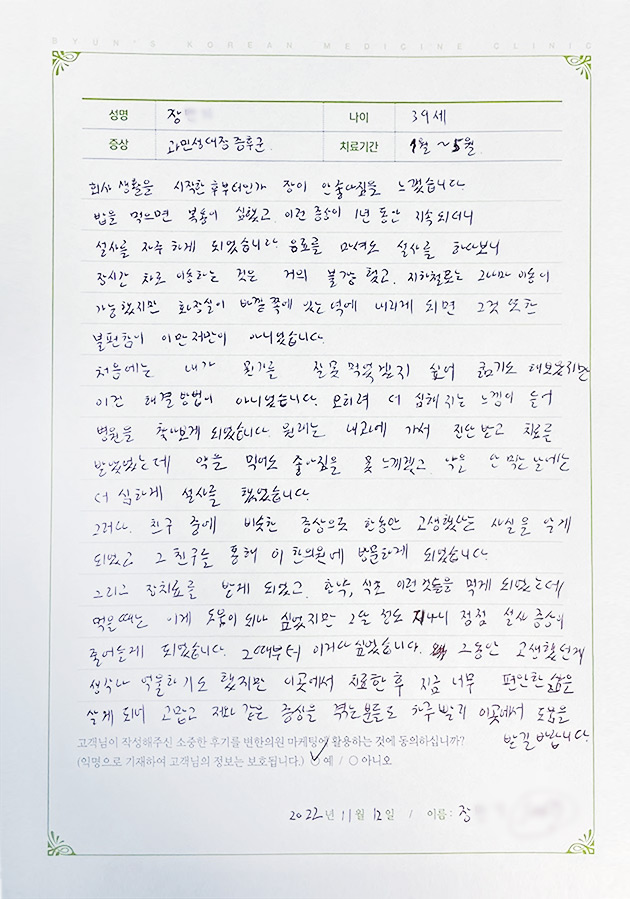 BYUN'S KOREAN MEDICINE CLINIC
성명 장 나이 39세
증상 과민성대장증후군 치료기간 1월 ~ 5월
회사 생활을 시작한 후부터인가 장이 안좋아짐을 느꼈습니다
밥을 먹으면 복통이 심했고 이런 증상이 1년 동안 지속되더니
설사를 자주 하게 되었습니다. 음료를 마셔도 설사를 하다보니
장시간 차로 이동하는 것은 거의 불가능 했고. 지하철로는 그나마 이동이
가능했지만 화장실이 바깥쪽에 있는 역에 내리게 되면 그것 또한
불편함이 이만저만이 아니었습니다.
처음에는 내가 뭔가를 잘못 먹었겠지 싶어 굶기도 해보았지만
이건 해결방법이 아니었습니다. 오히려 더 심해지는 느낌이 들어
병원을 찾아보게 되었습니다. 원래는 내과에 가서 진단받고 치료를
받았었는데 약을 먹어도 좋아짐을 못 느끼겠고 약을 안 먹는 날에는
더 심하게 설사를 했었습니다.
그러다. 친구 중에 비슷한 증상으로 한동안 고생했다는 사실을 알게
되었고 그 친구를 통해 이 한의원에 방문하게 되었습니다.
그리고 장치료를 받게 되었고. 한약, 식초 이런것들을 먹게 되었는데
먹을때는 이게 도움이 되나 싶었지만 2달 정도 지나니 점점 설사 증상이
줄어들게 되었습니다. 그때부터 이거다 싶었습니다. 그동안 고생했던게
생각나 억울하기도 했지만 이곳에서 치료한 후 지금 너무 편안한 삶을
살게 되어 고맙고 저와 같은 증상을 겪는분들도 하루빨리 이곳에서 도움을
받길 바랍니다.
고객님이 작성해주신 소중한 후기를 변한의원 마케팅에 활용하는 것에 동의하십니까?
(익명으로 기재하여 고객님의 정보는 보호됩니다.) ○ 예 / ○ 아니오
2022년 11월 12일 / 이름 : 장